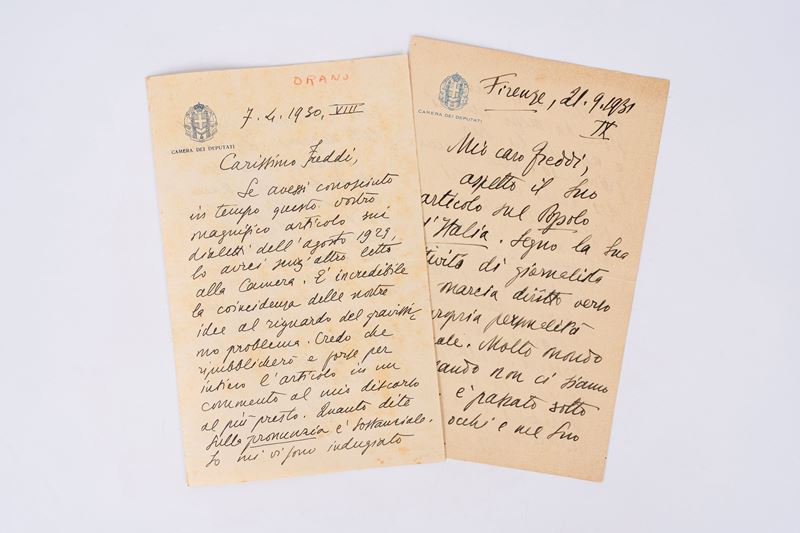 ORANO
7.4.1930, VIII
CAMERA DEI DEPUTATI
Carissimo Freddi,
Se avessi conosciuto
in tempo questo vostro
magnifico articolo sui
dialetti dell'agosto 1929,
lo avrei senz'altro letto
alla Camera. È incredibile
la coincidenza delle nostre
idee al riguardo del gravissi-
mo problema. Credo che
ripubblicherò e forse per
intiero l'articolo in un
commento al mio discorso
al più presto. Quanto dite
sulla pronunzia è sostanziale.
Io mi vi sono indugiato
CAMERA DEI DEPUTATI
Firenze, 21.9.1931
IX
Mio caro Freddi,
aspetto il Suo
articolo sul Popolo
d'Italia. Seguo la Sua
tività di giornalista
marcia diritto verso
ropria personalità
ale. Molto mondo
uando non ci siamo
è passato sotto
occhi e nel Suo